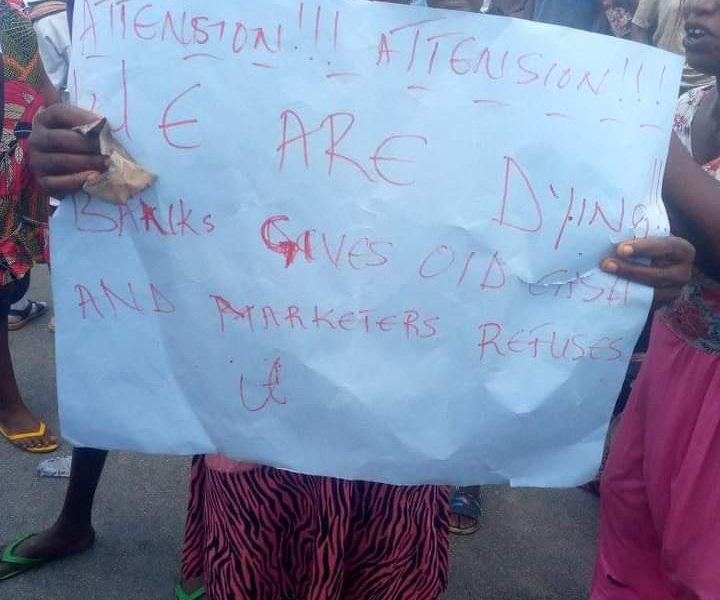 ATTENSION!!! ATTENSION!!!
WE ARE DYING!!
BANKS GIVES OLD CASH
AND MARKETERS REFUSES
it